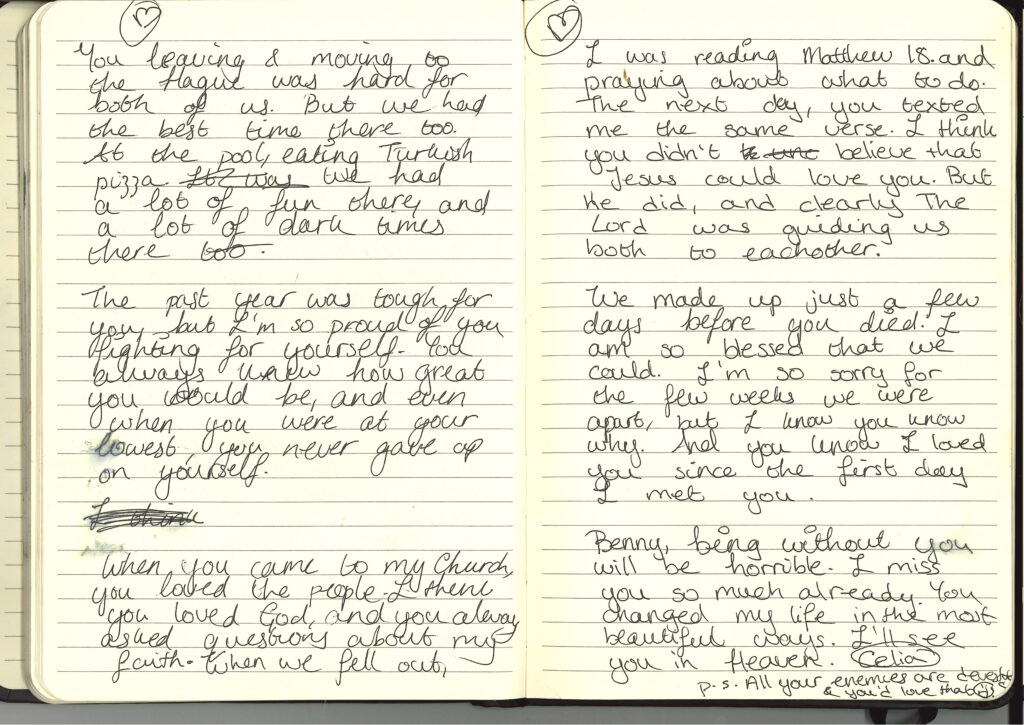 You leaving & moving to
the Hague was hard for
both of us. But we had
the best time there too.
At the pool, eating Turkish
pizza. It was We had
a lot of fun there, and
a lot of dark times
there too.
The past year was tough for
you, but I'm so proud of you
fighting for yourself. You
always knew how great
you would be, and even
when you were at your
lowest, you never gave up
on yourself.
I think
When you came to my Church,
you loved the people. I think
you loved God, and you always
asked questions about my
faith. When we fell out,
I was reading Matthew 18. and
praying about what to do.
The next day, you texted
me the same verse. I think
you didn't believe that
Jesus could love you. But
He did, and clearly The
Lord was guiding us
both to eachother.
We made up just a few
days before you died. I
am so blessed that we
could. I'm so sorry for
the few weeks we were
apart, but I know you know
why. And you know I loved
you since the first day
I met you.
Benny, being without you
will be horrible. I miss
you so much already. You
changed my life in the most
beautiful ways. I'll see
you in Heaven. Celia
p.s. All your enemies are
& you'd love that